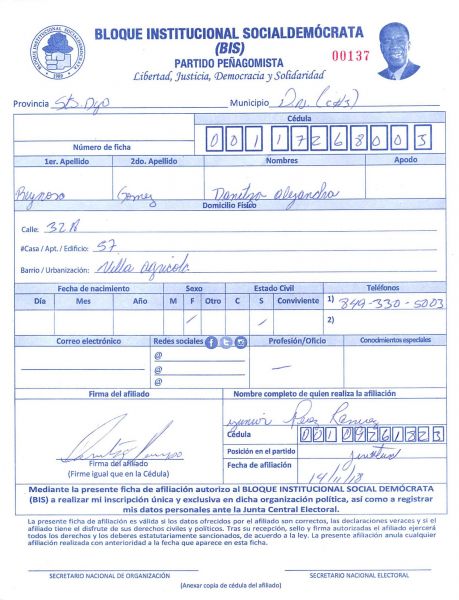 BLOQUE INSTITUCIONAL SOCIALDEMÓCRATA
(BIS)
PARTIDO PEÑAGOMISTA
00137
Libertad, Justicia, Democracia y Solidaridad
Provincia Sto Dgo Municipio D.N. (c#3)
Cédula
Número de ficha 00117268003
1er. Apellido 2do. Apellido Nombres Apodo
Reynoso Gomez Danitza Alejandra
Domicilio Físico
Calle: 32 A
#Casa / Apt. / Edificio: 37
Barrio / Urbanización: Villa Agricola
Fecha de nacimiento Sexo Estado Civil Teléfonos
Día Mes Año M F Otro C S Conviviente 1) 849-330-5003
2)
Correo electrónico Redes sociales Profesión/Oficio Conodmientos especiales
@
@
@
Firma del afiliado Nombre completo de quien realiza la afiliación
Junior Perez Ramirez
Cédula
Posición en el partido
Firma del afiliado
(Firme igual que en la Cédula)
Fecha de afiliación 14/11/18
Mediante la presente ficha de afiliación autorizo al BLOQUE INSTITUCIONAL SOCIAL DEMÓCRATA
(BIS) a realizar mi inscripción única y exclusiva en dicha organización política, así como a registrar
mis datos personales ante la Junta Central Electoral.
La presente ficha de afiliación es válida si los datos ofrecidos por el afiliado son correctos, las declaraciones veraces y si el
afiliado tiene el disfrute de sus derechos civiles y políticos. Tras su recepción, sello y firma autorizadas el afiliado ejercerá
todos los derechos y los deberes estatutariamente sancionados, de acuerdo a la ley. La presente afiliación anula cualquier
afiliación realizada con anterioridad a la fecha que aparece en esta ficha.
SECRETARIO NACIONAL DE ORGANIZACIÓN SECRETARIO NACIONAL ELECTORAL
(Anexar copia de cédula del afiliado)